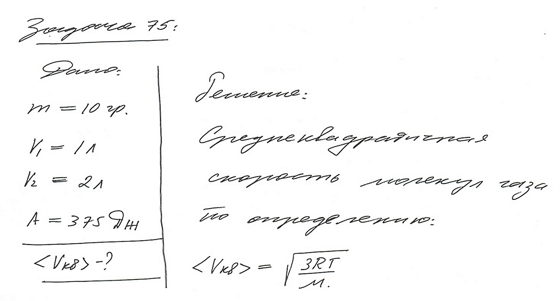 Задача 75:
Дано:
m = 10 гр.
V₁ = 1 л
V₂ = 2 л
A = 375 Дж
<Vкв> - ?
Решение:
Среднеквадратичная
скорость молекул газа
по определению:
<Vкв> = √(3RT/M.)